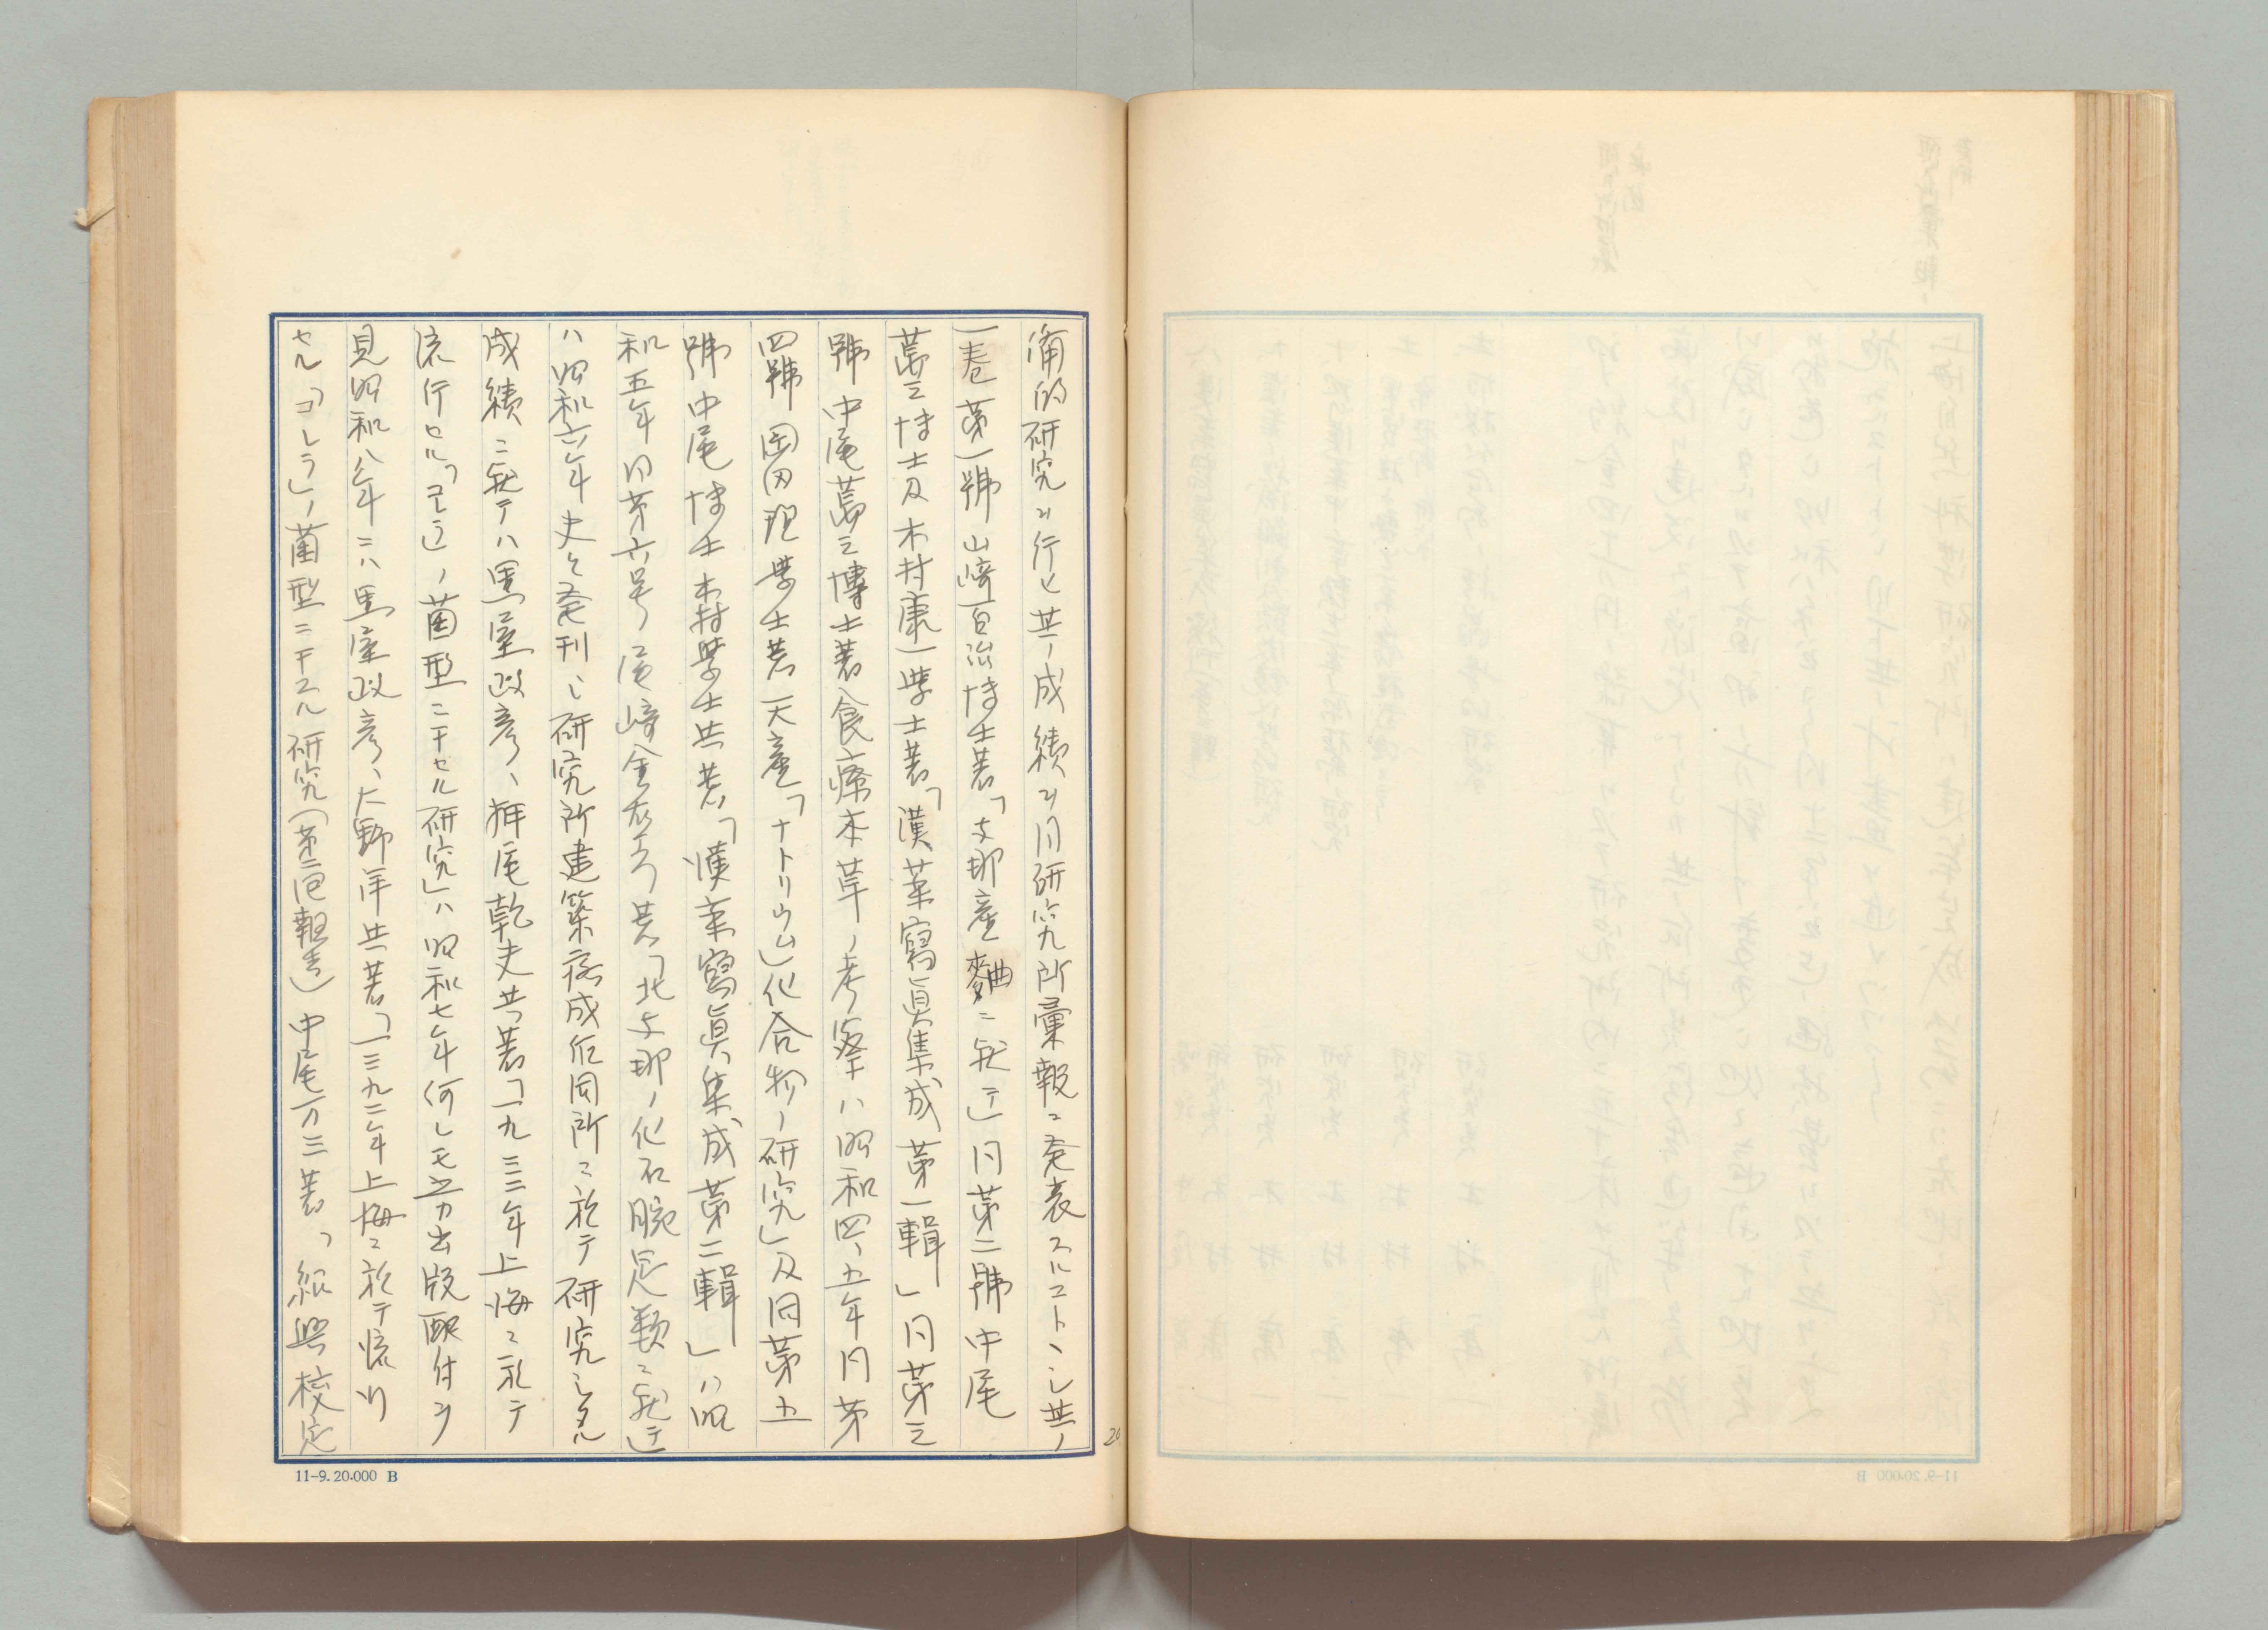 備的研究ヲ行ヒ其ノ成績ヲ同研究所彙報ニ発表スルコトヽシ其ノ
一巻第一號山崎百治博士著「支那産麴ニ就テ」同第二號中尾
萬三博士及木村康一學士著「漢薬寫眞集成第一輯」同第三
號中尾萬三博士著食療本草ノ考察ハ昭和四、五年同第
四號岡田現學士著天産「ナトリウム」化合物ノ研究」及同第五
號中尾博士木村學士共著「漢薬寫眞集成第二輯」ハ昭
和五年同第六号尾崎金右ヱ門著「北支那ノ化石腕足類ニ就テ」
ハ昭和六年夫々発刊シ研究所建築落成后同所ニ於テ研究シタル
成績ニ就テハ黒屋政彦、押尾乾夫共著「一九三二年上海ニ於テ
流行セル「コレラ」ノ菌型ニ干セル研究」ハ昭和七年何レモ立刀出版配付ヲ
見昭和八年ニハ黒屋政彦、大野洋共著「一三九二年上海ニ於テ流行
セル「コレラ」ノ菌型ニ干スル研究(第二回報告)中尾万三著「紹興校定
20
11-9.20.000 B